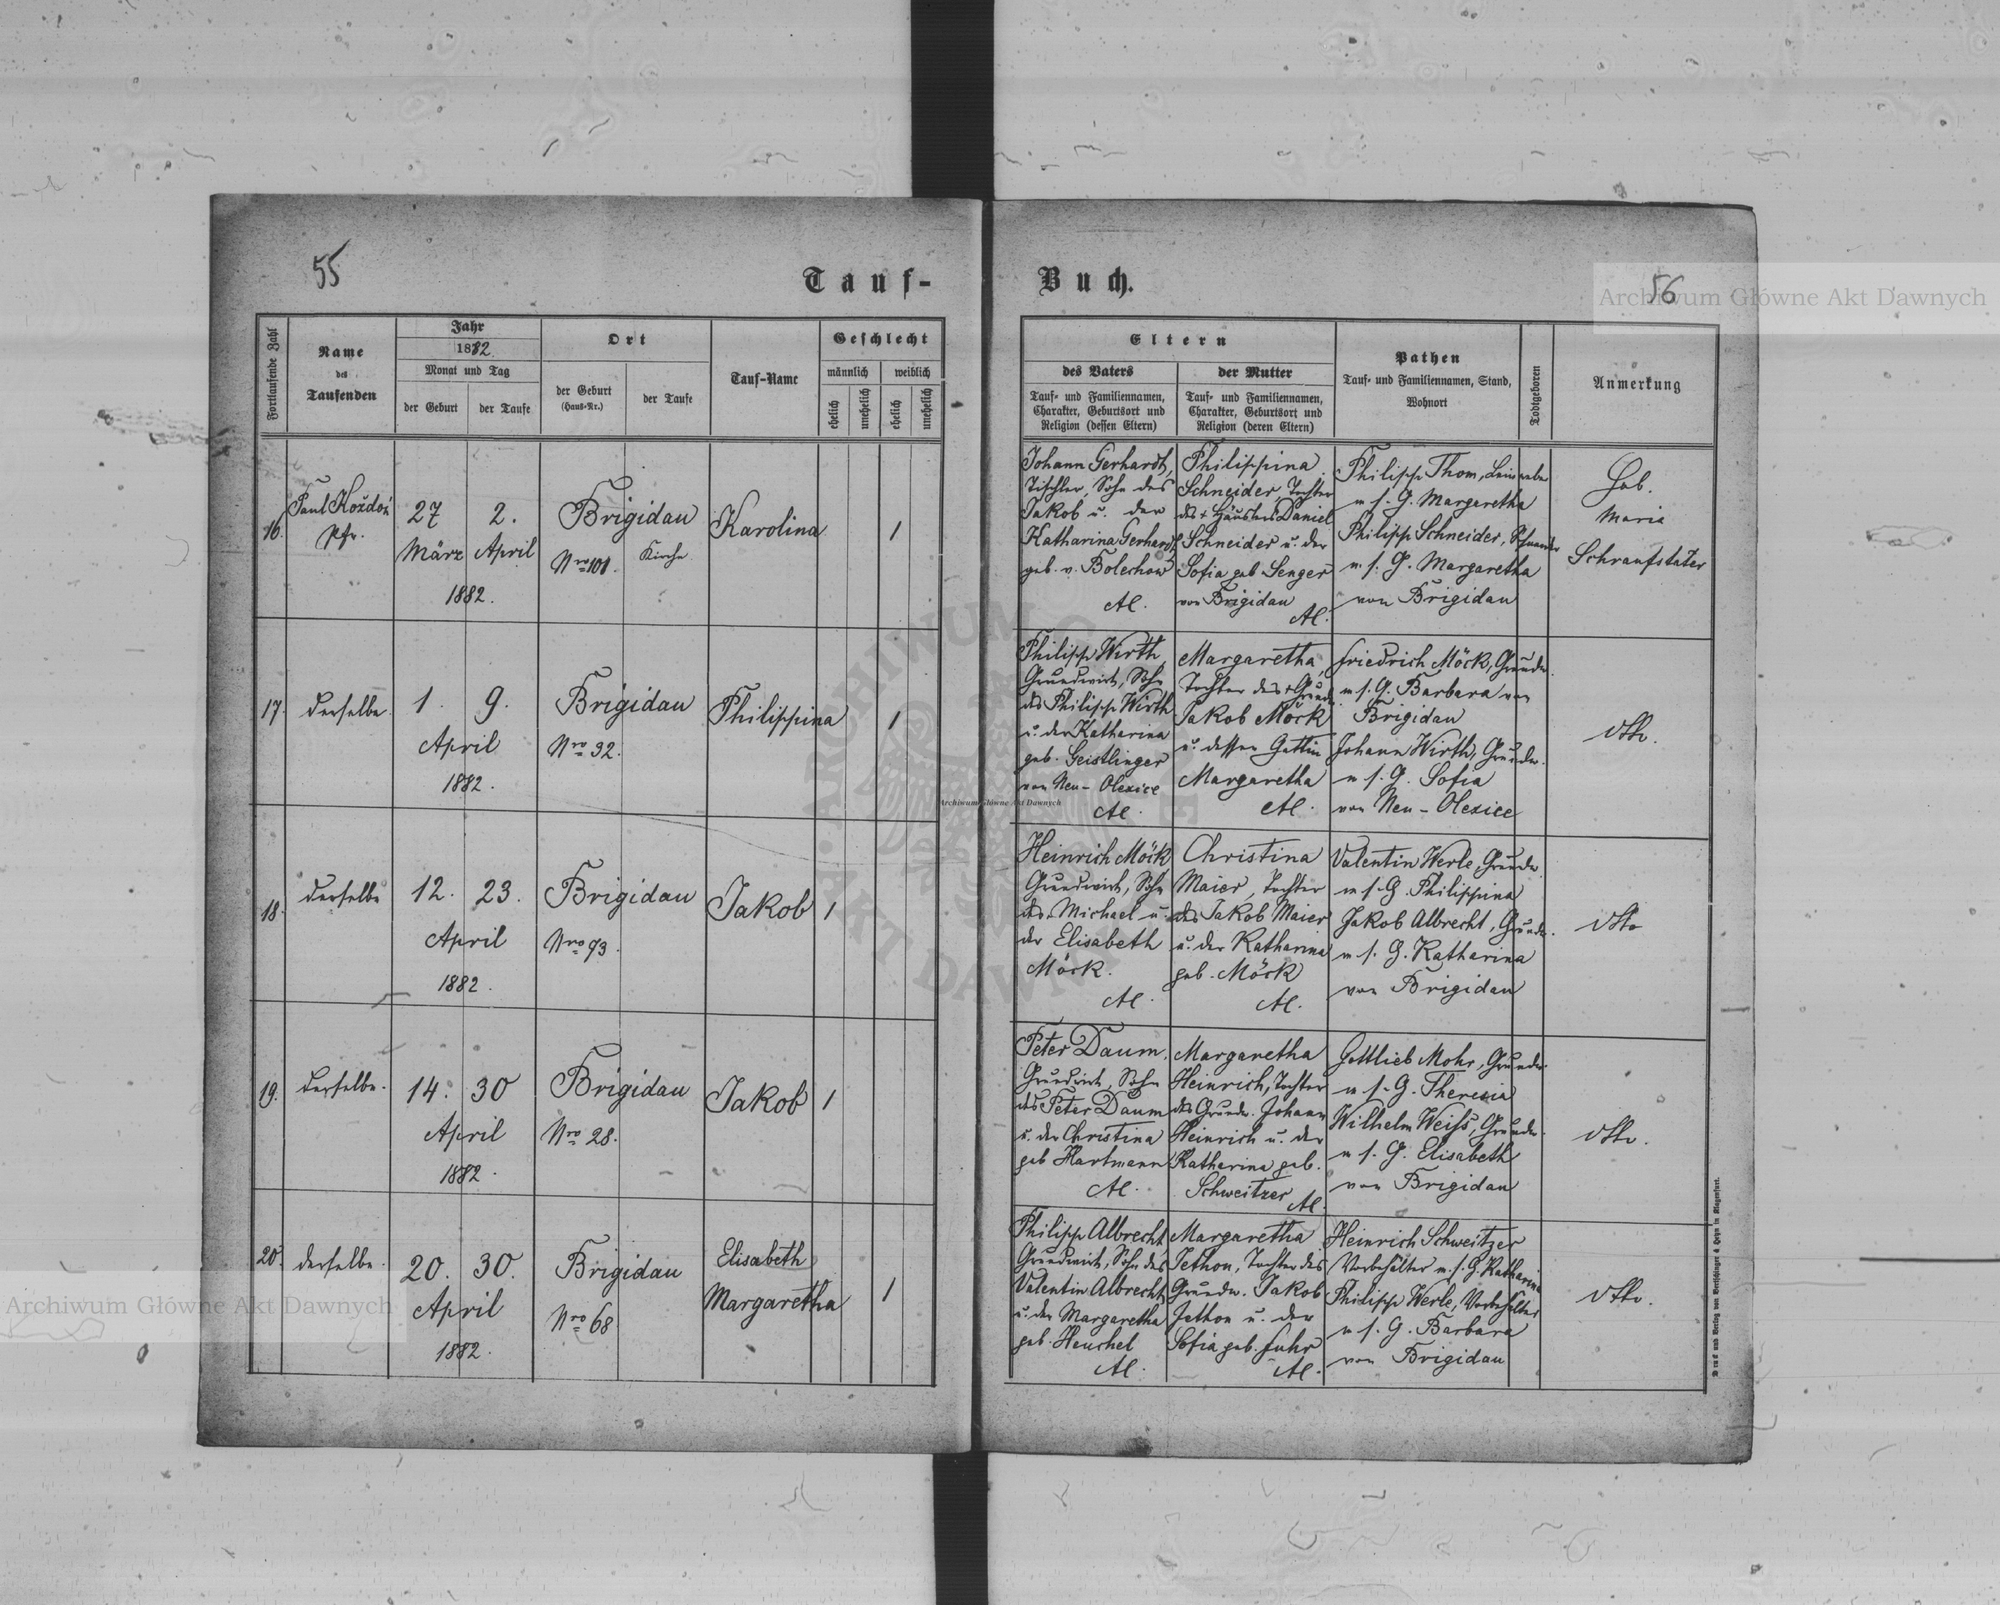 55
Tauf-
Fortlaufende Zahl
Name
des
Taufenden
Jahr
1882
Monat und Tag
der Geburt
der Taufe
Ort
der Geburt
(Haus-Nr.)
der Taufe
Tauf-Name
Geschlecht
männlich
weiblich
ehelich
unehelich
ehelich
unehelich
16.
Paul Koždoń
Pfr.
27
März
2.
April
1882.
Brigidau
Nro 101.
Kirche
Karolina
1
17.
derselbe.
1.
9.
April
1882.
Brigidau
Nro 32.
Philippina
1
18.
derselbe
12.
23.
April
1882.
Brigidau
Nro 93.
Jakob
1
19.
derselbe.
14.
30
April
1882.
Brigidau
Nro 28.
Jakob
1
20.
derselbe.
20.
30.
April
1882.
Brigidau
Nro 68
Elisabeth
Margaretha
1
Buch.
56
Eltern
des Vaters
Tauf- und Familiennamen,
Charakter, Geburtsort und
Religion (dessen Eltern)
der Mutter
Tauf- und Familiennamen,
Charakter, Geburtsort und
Religion (deren Eltern)
Pathen
Tauf- und Familiennamen, Stand,
Wohnort
Todtgeboren
Anmerkung
Johann Gerhardt,
Tischler, Sohn des
Jakob u. der
Katharina Gerhardt
geb. v. Bolechow
AC.
Philippina
Schneider, Tochter
des + Häuslers Daniel
Schneider u. der
Sofia geb Senger
von Brigidau
AC.
Philipp Thom, Leinwebe
m s. G. Margaretha
Philipp Schneider,
m s. G. Margaretha
von Brigidau
Heb.
Maria
Schraufstater
Philipp Wirth,
Grundwirt, Sohn
des Philipp Wirth
u. der Katharina
geb. Geistlinger
von Neu-Olexice
AC.
Margaretha,
Tochter des + Grund.
Jakob Möck
u. dessen Gattin
Margaretha
AC.
Friedrich Möck, Grundw.
m s. G. Barbara von
Brigidau
Johann Wirth, Grundw.
m s. G. Sofia
von Neu-Olexice
dtto.
Heinrich Möck
Grundwirt, Sohn
des Michael u.
der Elisabeth
Möck.
AC.
Christina
Maier, Tochter
des Jakob Maier
u. der Katharina
geb. Möck
AC.
Valentin Werle, Grundw.
m s. G. Philippina
Jakob Albrecht, Grundw.
m s. G. Katharina
von Brigidau
dtto
Peter Daum,
Grundwirt, Sohn
des Peter Daum
u. der Christina
geb Hartmann
AC.
Margaretha
Heinrich, Tochter
des Grundw. Johann
Heinrich u. der
Katharina geb.
Schweitzer
AC.
Gottlieb Mohr, Grundw.
m s. G. Theresia
Wilhelm Weiß, Grundw.
m s. G. Elisabeth
von Brigidau
dtto.
Philipp Albrecht,
Grundwirt, Sohn des
Valentin Albrecht
u. der Margaretha
geb. Heuchel
AC.
Margaretha
Jethon, Tochter des
Grundw. Jakob
Jethon u. der
Sofia geb. Fuhr
AC.
Heinrich Schweitzer
Vorbehälter m. s. G. Katharina
Philipp Werle, Vorbehälter
m s. G. Barbara
von Brigidau
dtto.
Druck und Verlag von Bertschinger & Heyn in Klagenfurt.
Archiwum Główne Akt Dawnych
Archiwum Główne Akt Dawnych
Archiwum Główne Akt Dawnych